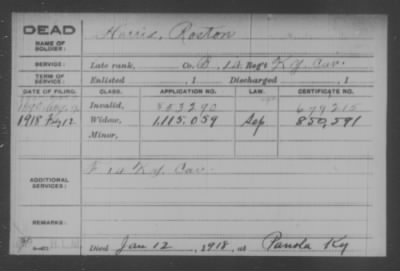 DEAD
NAME OF SOLDIER: Harris, Roston
SERVICE: Late rank, Co. D, 14 Reg't Ky. Cav.
TERM OF SERVICE: Enlisted , 1 Discharged , 1
DATE OF FILING. CLASS. APPLICATION NO. LAW. CERTIFICATE NO.
1890 Invalid, 853290 679215
1918 Feby 12 Widow, 1,115,059 Sep 850,591
Minor,
ADDITIONAL SERVICES: F 14 Ky. Cav.
REMARKS:
Died Jan 12, 1918, at Panola Ky